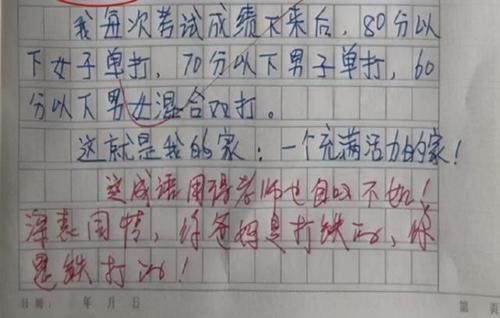 我每次考试成绩下来后，80分以
下女子单打，70分以下男子单打，60
分以下男女混合双打。
这就是我的家：一个充满活力的家！
这成语用得老师也自叹不如！
深表同情，你爸妈是打铁的，你
是铁打的！
日期： 年 月 日 第 页